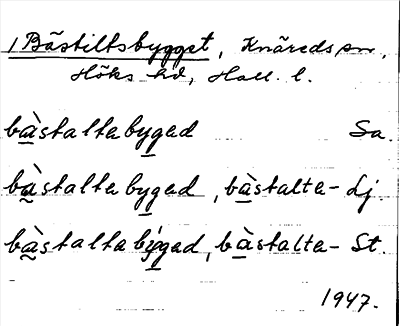 1 Bästiltsbygget, Knäreds sn,
Höks hd, Hall. l.
bàstaltabygad Sa.
bàstaltabygad, bàstalta- Lj.
bàstaltabýgad, bàstalta- St.
1947.